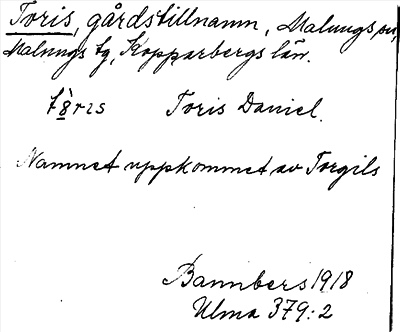 Toris, gårdstillnamn, Malungs sn,
Malungs tg, Kopparbergs län.
tö̀ris Toris Daniel.
Namnet uppkommet av Torgils
Bannbers 1918
Ulma 379:2